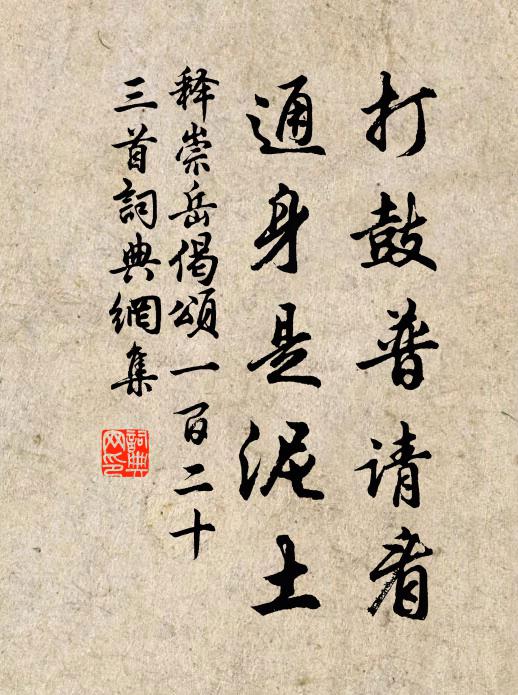 打鼓普请看
通身是泥土
释崇岳偈颂一百二十
三首詞典網集
詞典
网印